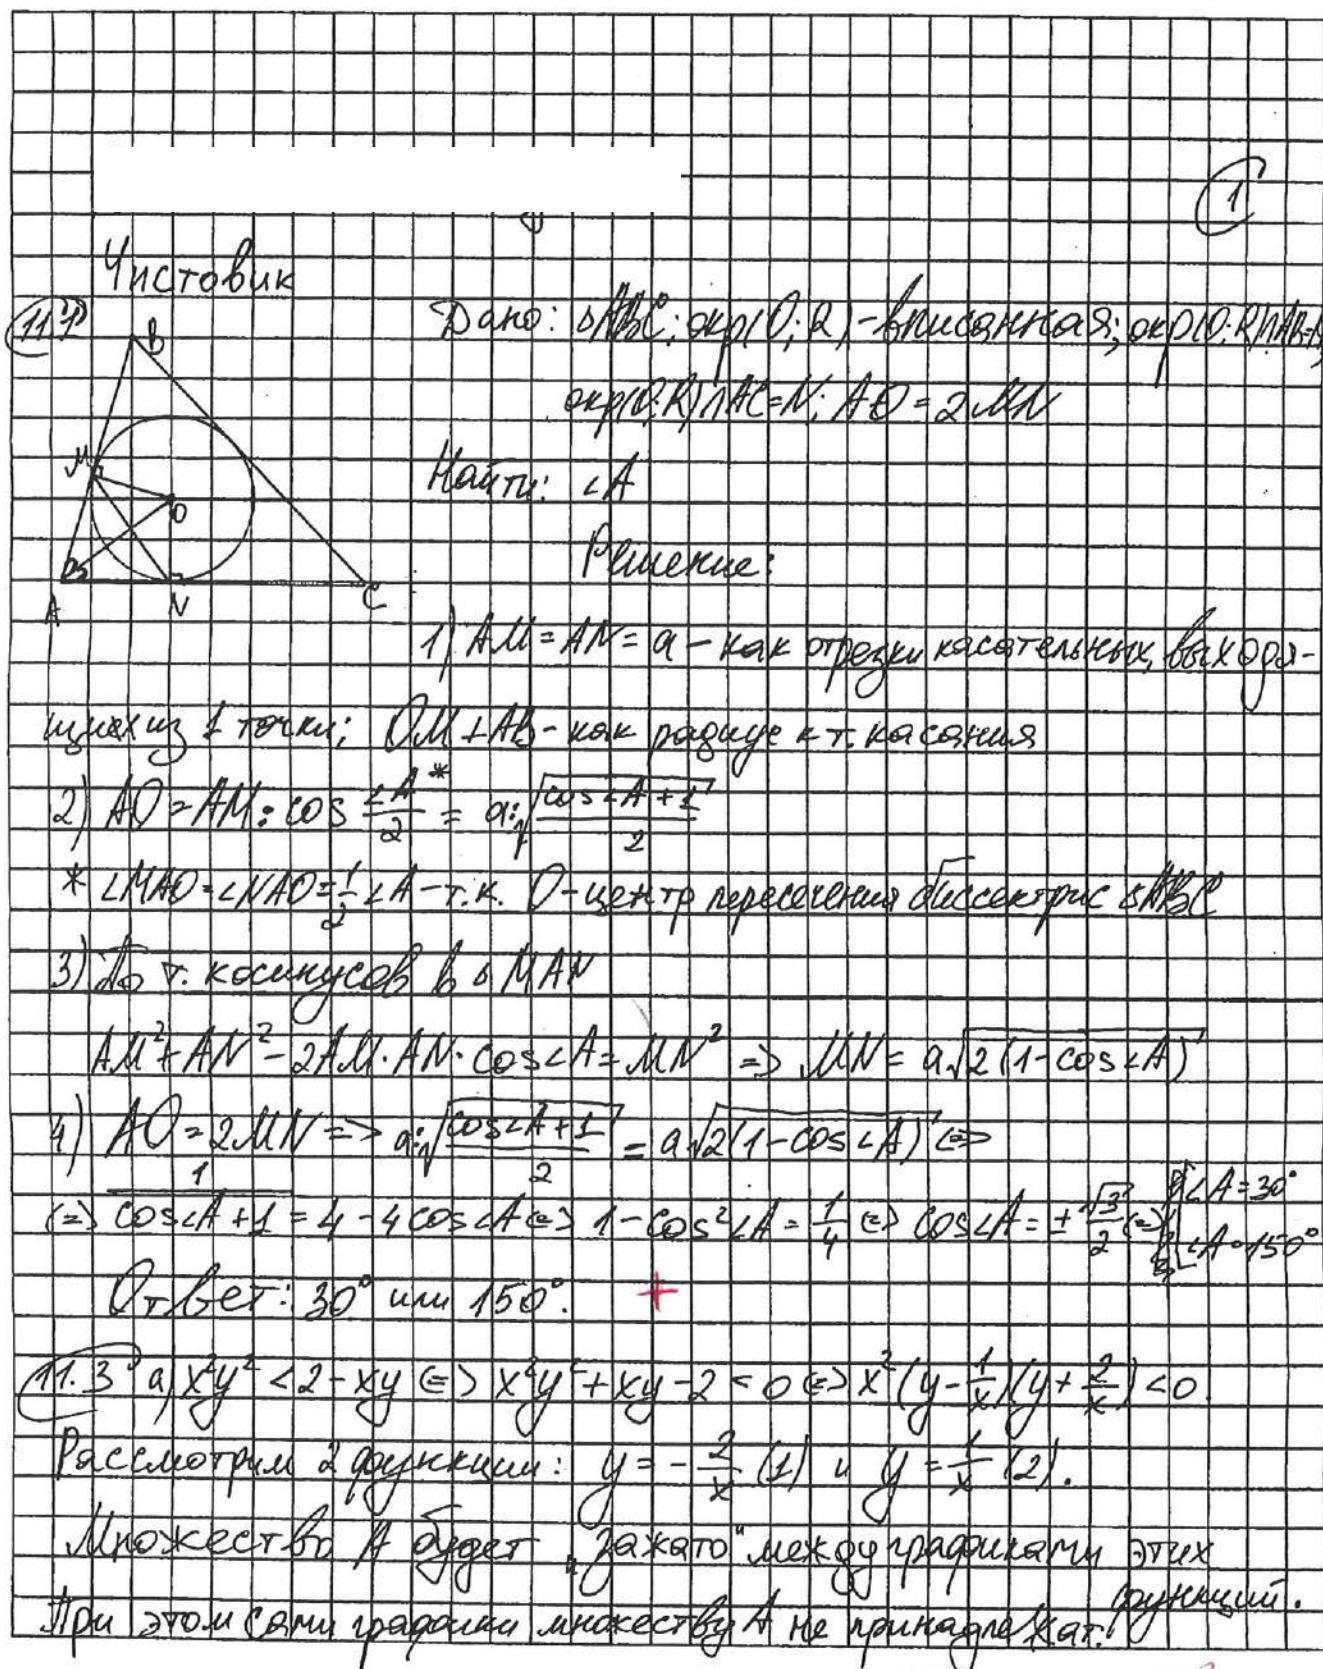 1
Чистовик
11.1
Дано: △ABC; окр(O; R) - вписанная; окр(O; R)∩AB=M
окр(O; R)∩AC=N; AO=2MN
B
M
O
A
N
C
Найти: ∠A
Решение:
1) AM = AN = a - как отрезки касательных, выходя-
щих из 1 точки; OM ⊥ AB - как радиус к т. касания
2) AO = AM : cos ∠A/2 * = a : √((cos∠A + 1)/2)
* ∠MAO = ∠NAO = 1/2 ∠A - т.к. O - центр пересечения биссектрис △ABC
3) По т. косинусов в △MAN
AM² + AN² - 2AM·AN·cos∠A = MN² => MN = a√(2(1-cos∠A))
4) AO = 2MN => a : √((cos∠A + 1)/2) = a√(2(1-cos∠A)) <=>
<=> 1/(cos∠A + 1) = 4 - 4cos∠A <=> 1 - cos²∠A = 1/4 <=> cos∠A = ± √3/2 <=> [∠A = 30° ∠A = 150°
Ответ: 30° или 150°. +
11.3 а) x²y² < 2 - xy <=> x²y² + xy - 2 < 0 <=> x²(y - 1/x)(y + 2/x) < 0.
Рассмотрим 2 функции: y = - 2/x (1) и y = 1/x (2).
Множество A будет „зажато" между графиками этих
функций.
При этом сами графики множеству A не принадлежат.